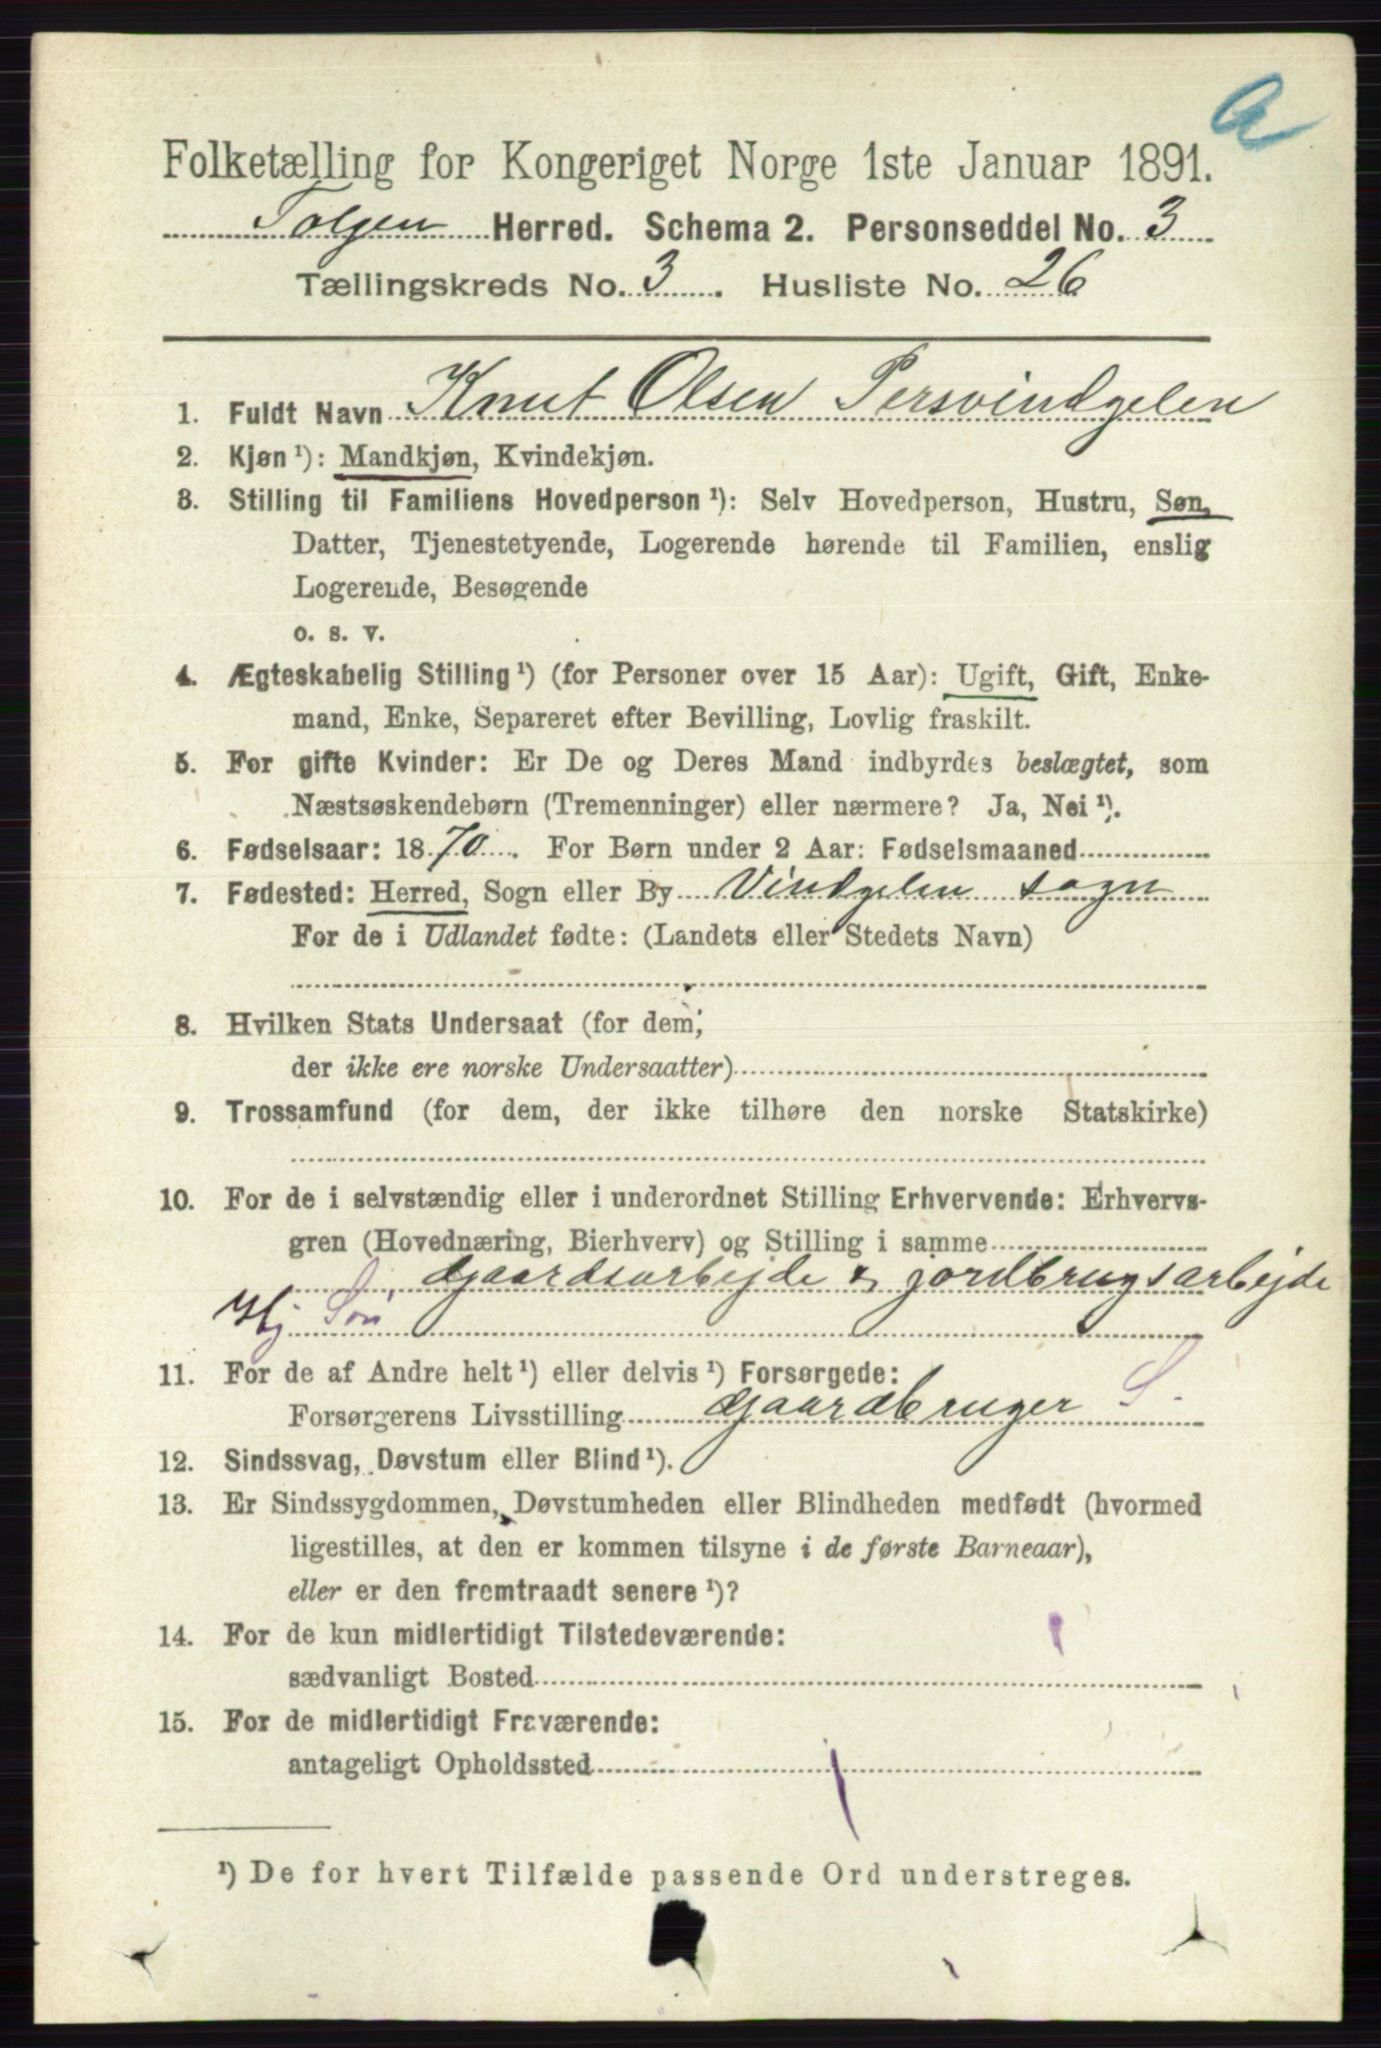 a
Folketælling for Kongeriget Norge 1ste Januar 1891.
Tolgen Herred. Schema 2. Personseddel No. 3
Tællingskreds No. 3. Husliste No. 26
1. Fuldt Navn Knut Olsen Persvindgelen
2. Kjøn ¹): Mandkjøn, Kvindekjøn.
3. Stilling til Familiens Hovedperson ¹): Selv Hovedperson, Hustru, Søn,
Datter, Tjenestetyende, Logerende hørende til Familien, enslig
Logerende, Besøgende
o. s. v.
4. Ægteskabelig Stilling ¹) (for Personer over 15 Aar): Ugift, Gift, Enke-
mand, Enke, Separeret efter Bevilling, Lovlig fraskilt.
5. For gifte Kvinder: Er De og Deres Mand indbyrdes beslægtet, som
Næstsøskendebørn (Tremenninger) eller nærmere? Ja, Nei ¹).
6. Fødselsaar: 1870. For Børn under 2 Aar: Fødselsmaaned
7. Fødested: Herred, Sogn eller By Vindgelen sogn
For de i Udlandet fødte: (Landets eller Stedets Navn)
8. Hvilken Stats Undersaat (for dem,
der ikke ere norske Undersaatter)
9. Trossamfund (for dem, der ikke tilhøre den norske Statskirke)
10. For de i selvstændig eller i underordnet Stilling Erhvervende: Erhvervs-
gren (Hovednæring, Bierhverv) og Stilling i samme
Gaardsarbejde & jordbrugsarbejde
Hj Søn
11. For de af Andre helt ¹) eller delvis ¹) Forsørgede:
Forsørgerens Livsstilling Gaardbruger S.
12. Sindssvag, Døvstum eller Blind ¹).
13. Er Sindssygdommen, Døvstumheden eller Blindheden medfødt (hvormed
ligestilles, at den er kommen tilsyne i de første Barneaar),
eller er den fremtraadt senere ¹)?
14. For de kun midlertidigt Tilstedeværende:
sædvanligt Bosted
15. For de midlertidigt Fraværende:
antageligt Opholdssted
¹) De for hvert Tilfælde passende Ord understreges.